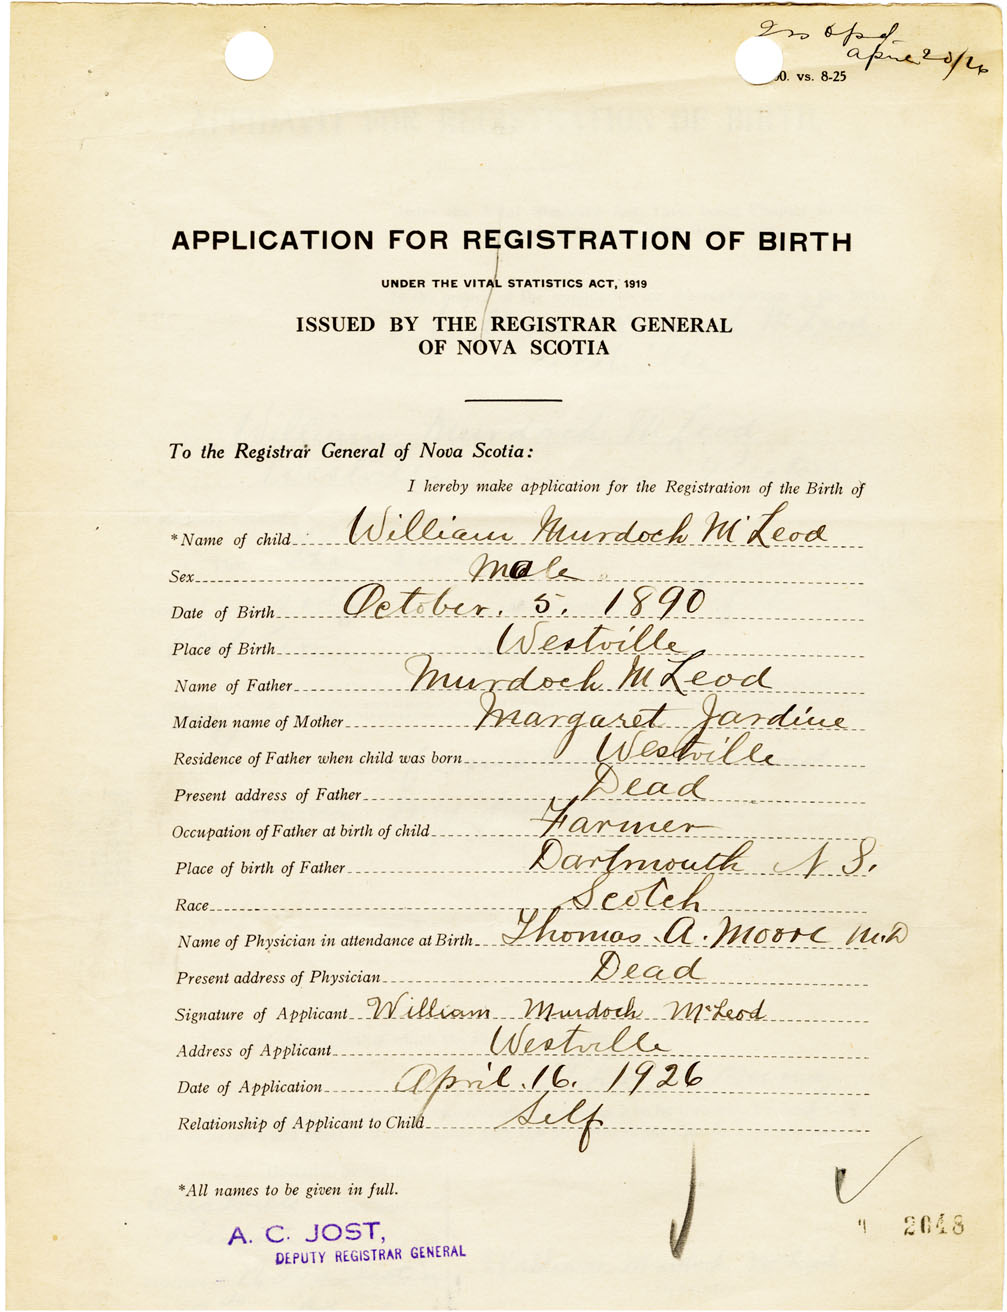 April 20/26
00. vs. 8-25
APPLICATION FOR REGISTRATION OF BIRTH
UNDER THE VITAL STATISTICS ACT, 1919
ISSUED BY THE REGISTRAR GENERAL
OF NOVA SCOTIA
To the Registrar General of Nova Scotia:
I hereby make application for the Registration of the Birth of
*Name of child William Murdoch McLeod
Sex Male
Date of Birth October. 5. 1890
Place of Birth Westville
Name of Father Murdoch McLeod
Maiden name of Mother Margaret Jardine
Residence of Father when child was born Westville
Present address of Father Dead
Occupation of Father at birth of child Farmer
Place of birth of Father Dartmouth N S.
Race Scotch
Name of Physician in attendance at Birth Thomas. A. Moore M.D
Present address of Physician Dead
Signature of Applicant William Murdoch McLeod
Address of Applicant Westville
Date of Application April. 16. 1926
Relationship of Applicant to Child Self
*All names to be given in full.
A. C. JOST,
DEPUTY REGISTRAR GENERAL
2648